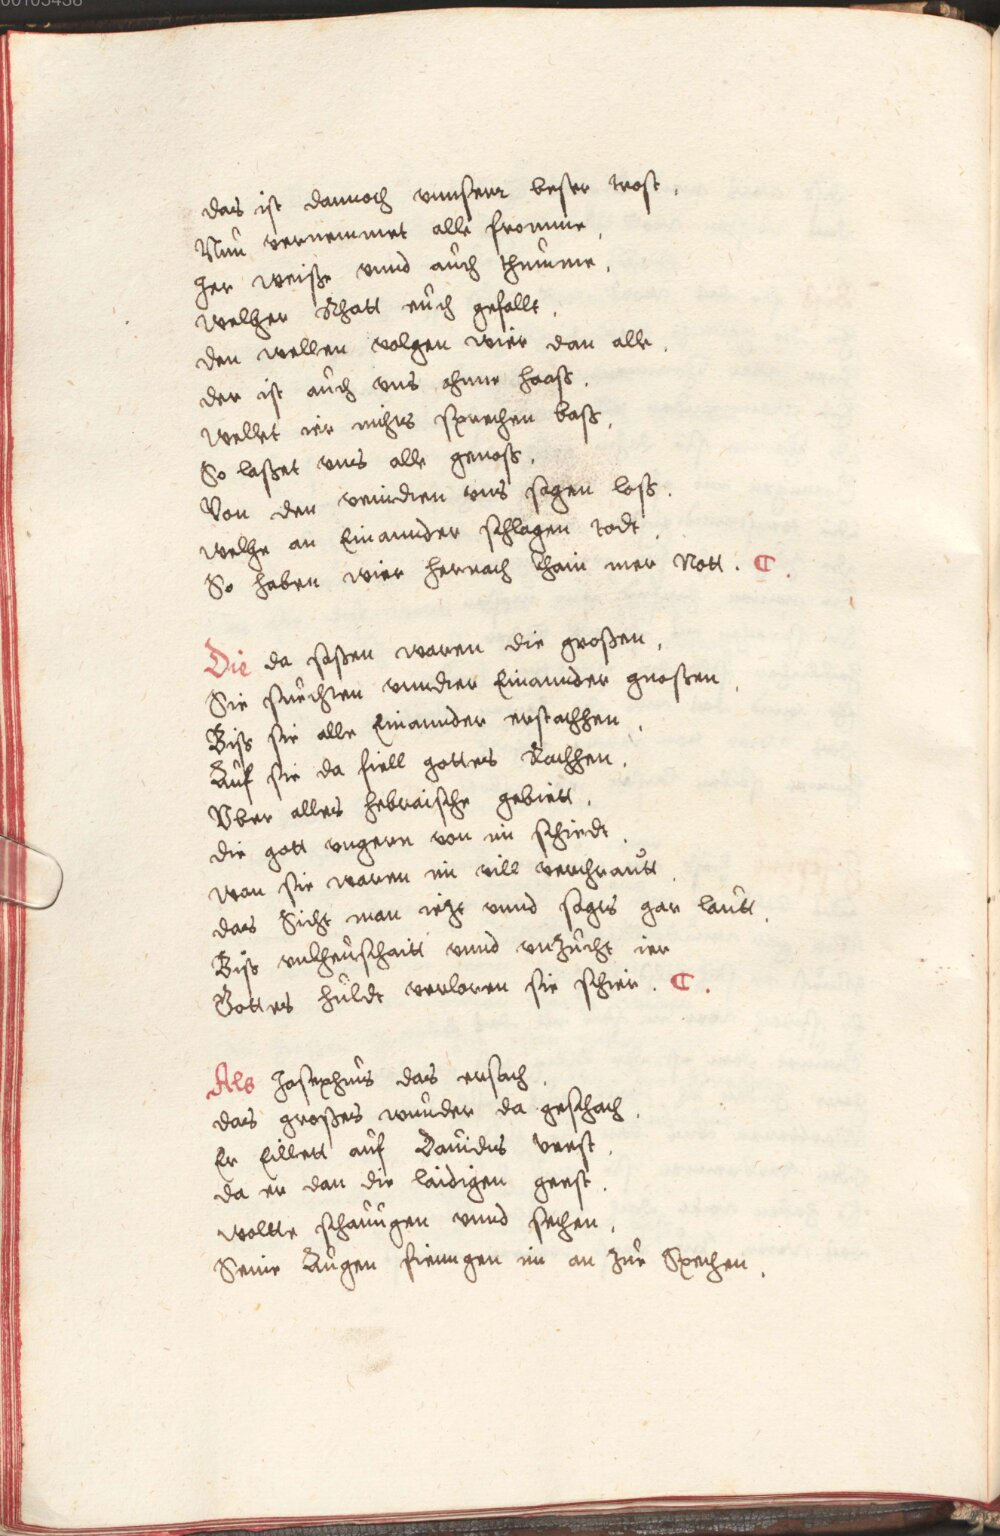 00103438
das ist dannoch vnnserr beser trost,
Nŭn vernemmet alle fromme,
Jer weiße vnnd aŭch thŭmme,
welher Rhatt eŭch gefallt,
den wellen volgen wier dan alle,
der ist aŭch vns ohnne haaß,
wellet ier nichts sprechen baß,
So laßet vnns alle genoß,
Von den veindten vns sagen loß,
welhe an Einannder schlagen todt,
So haben wier hernach khain mer Nott. C.
Die da saßen waren die großen,
Sie sŭechten vnndter Einannder gnoßen,
Biss sie alle Einannder erstachhen,
Aŭf sie da fiell gottes Rachhen,
Vber alles hebraische gebiett,
die gott vngern von im schiedt,
wan sie waren im vill verthraŭtt,
das Sicht man iezt vnnd sagts gar laŭtt,
Biss vnkheŭschaitt vnnd vnzŭcht ier
Gottes hŭldt verloren sie schier. C.
Als Josephŭs das ersach,
das großes wŭnder da geschach,
Er Eillett aŭf Dauidts vesst,
da er dan die laidigen gesst,
wollte schaŭŭgen vnnd sechen,
Seine Aŭgen fienngen im an zŭe Sprechen,